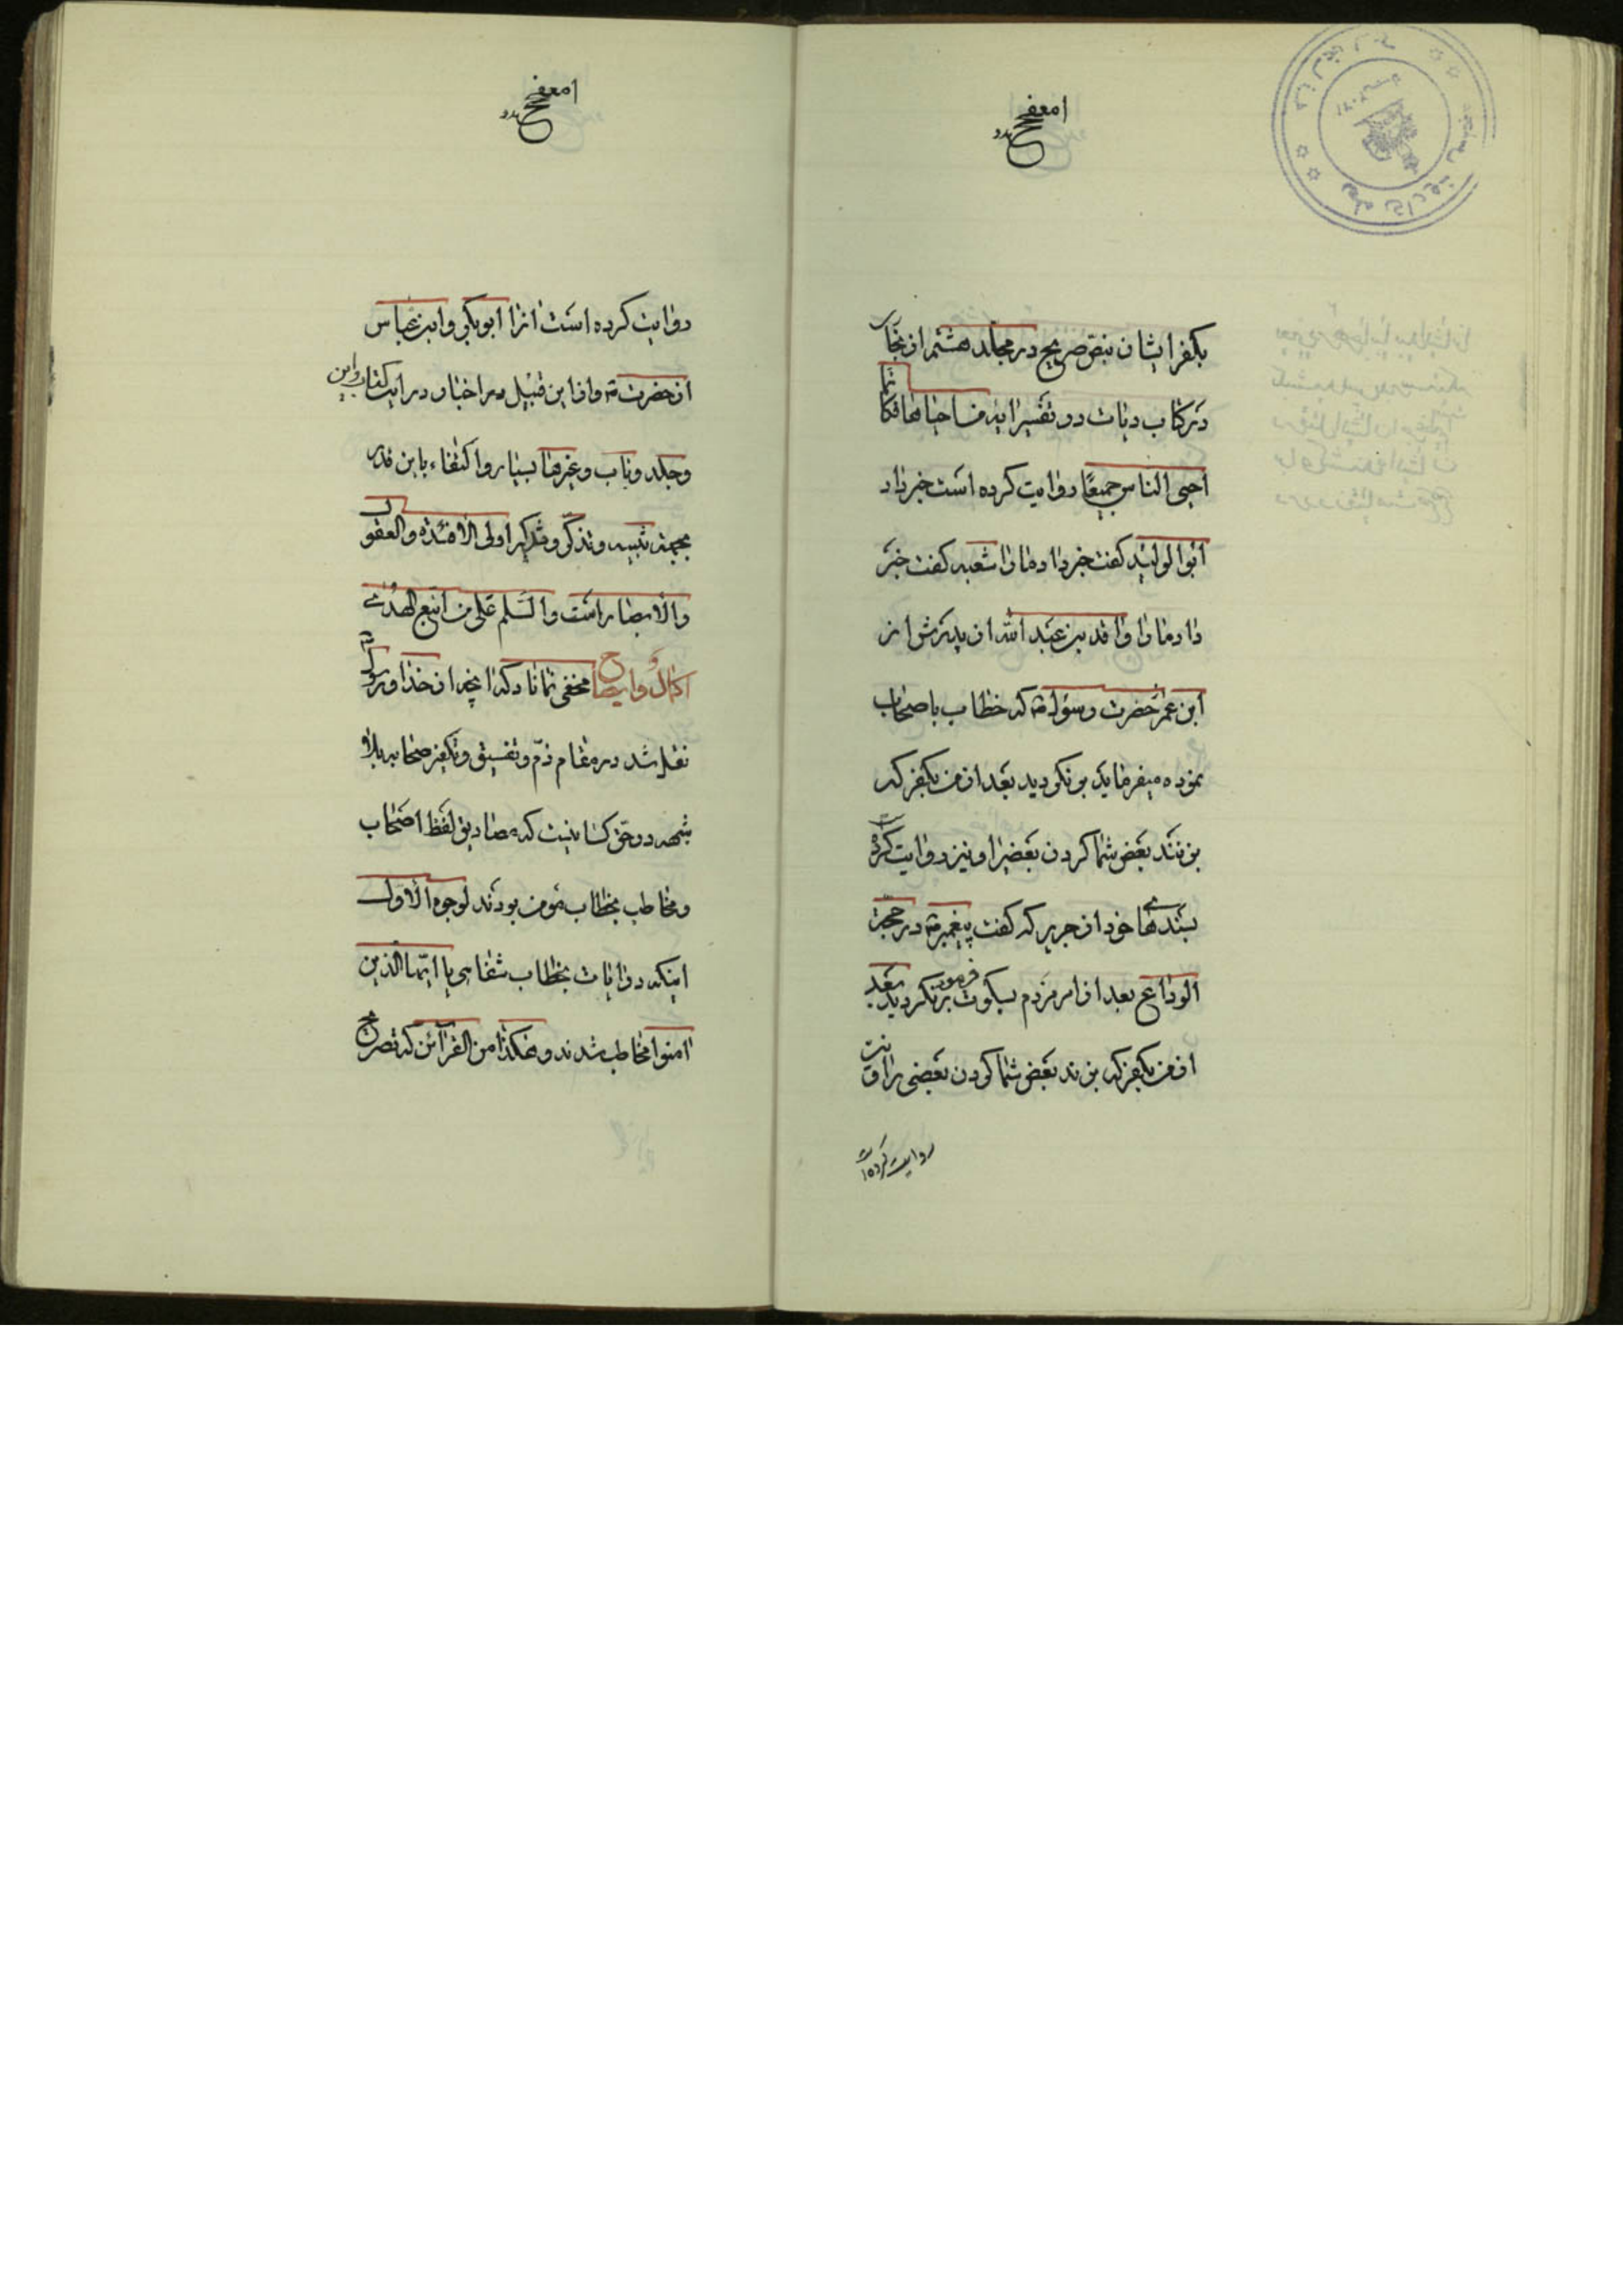 بکفر ایشان بنص صریح در مجلد هشتم از بخاری
در کتاب دیات در تفسیر ایه من احیاها فکانما
احیی الناس جمیعًا روایت کرده است خبر داد
ابوالولید کفت خبر داد مارا شعبه کفت خبر
داد مارا واقد بن عبد الله از پدرش از
ابن عمر حضرت رسول ص که خطاب باصحاب
نموده میفرماید بر نکردید بعد از من بکفر که
بزنند بعض شما کردن بعضیرا و نیز روایت کرده است
بسندهای خود از جریر که کفت پیغمبر ص در حجة
الوداع بعد از امر مردم بسکوت فرمود برنکردید بعد
از من بکفر که بزند بعض شما کردن بعضی را و نیز
روایت کرده است
روایت کرده است انرا ابوبکر و ابن عباس
از حضرت ص و از این قبیل در اخبار در این کتاب و این
و جلد و باب و غیرها بسیار و اکتفاء باین قدر
بجهة تنبیه و تذکر و تذکیر اولی الافئدة و العقول
والابصار است والسلم علی من اتبع الهدی
اکمالٌ و ایضاح مخفی نماناد که انچه از خدا و رسول ص
نقل شد در مقام ذم و تفسیق و تکفیر صحابه بلا
شبهه در حق کسانیست که مصادیق لفظ اصحاب
و مخاطب بخطاب مؤمن بودند لوجوه الاول
اینکه در ایات بخطاب شفاهی یا ایها الذین
امنوا مخاطب شدند و هکذا من القرآئن که تصریح